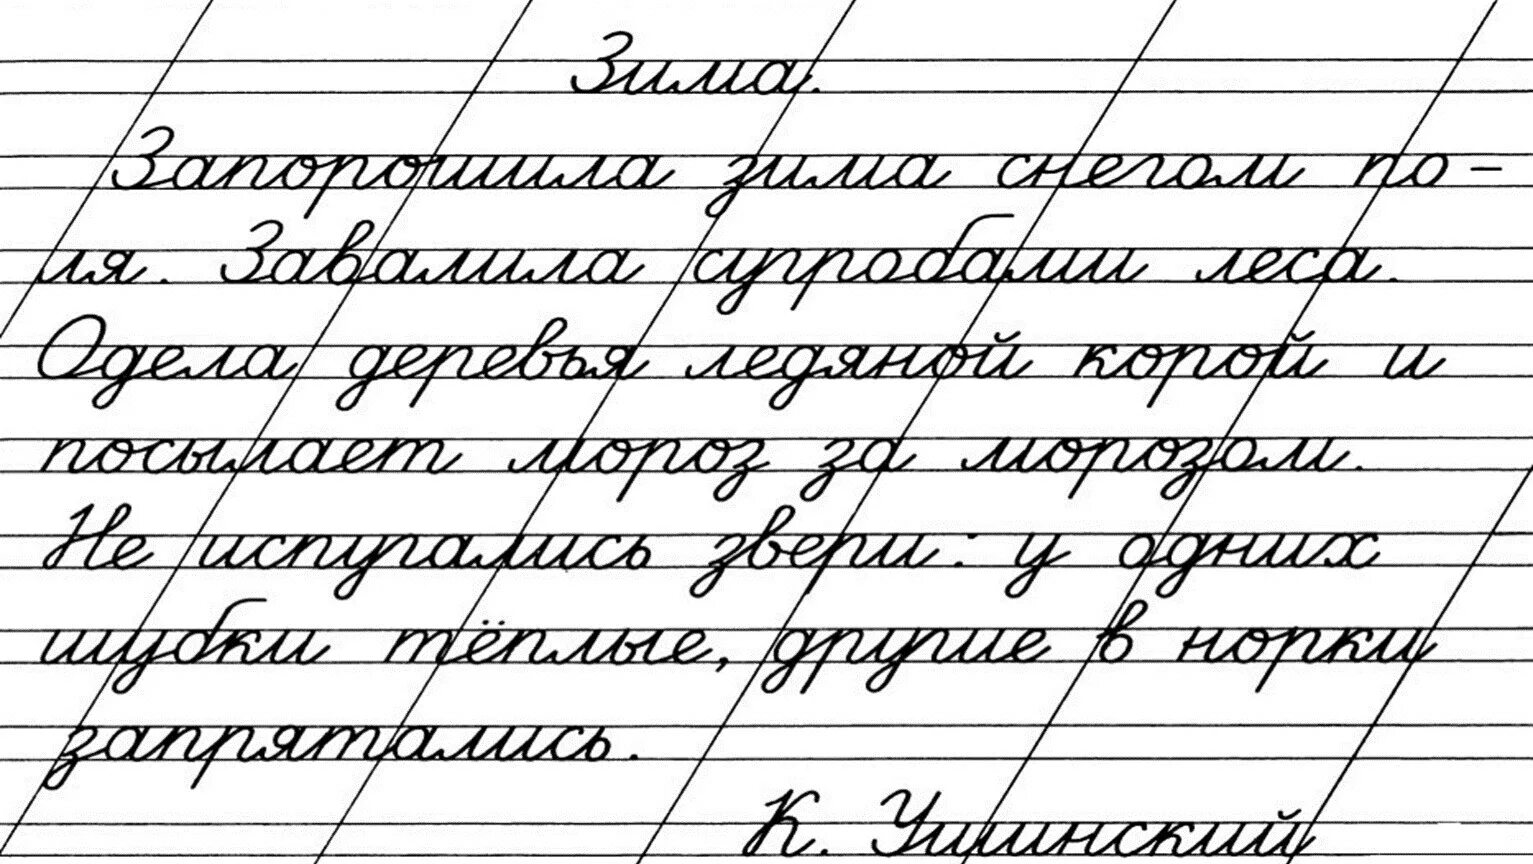 Зима.
Запорошила зима снегом по-
ля. Завалила сугробами леса.
Одела деревья ледяной корой и
посылает мороз за морозом.
Не испугались звери: у одних
шубки тёплые, другие в норки
запрятались.
К. Ушинский